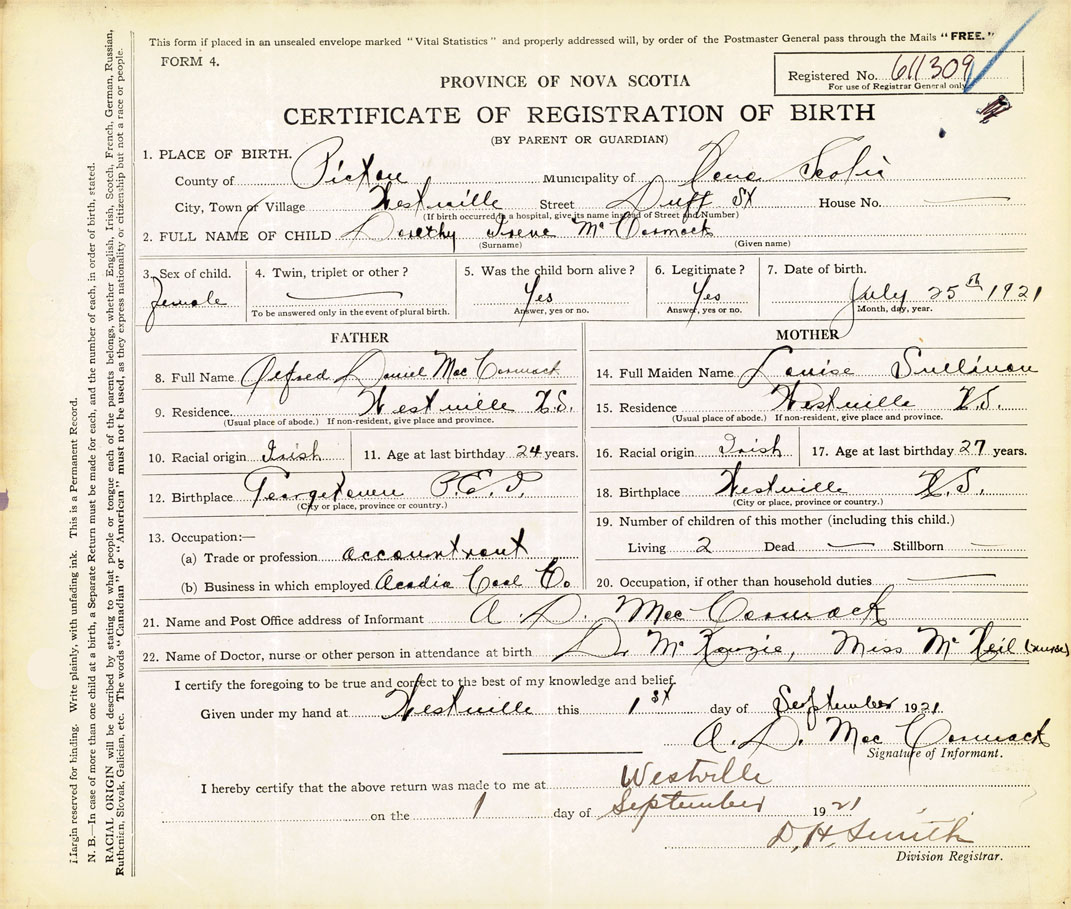 This form if placed in an unsealed envelope marked "Vital Statistics" and properly addressed will, by order of the Postmaster General pass through the Mails "FREE."
FORM 4.
Registered No. 611309
For use of Registrar General only
PROVINCE OF NOVA SCOTIA
CERTIFICATE OF REGISTRATION OF BIRTH
(BY PARENT OR GUARDIAN)
1. PLACE OF BIRTH.
County of Pictou Municipality of Nova Scotia
City, Town or Village Westville Street Duff St House No.
(If birth occurred in a hospital, give its name instead of Street and Number)
2. FULL NAME OF CHILD Dorothy Irene McCormack
(Surname) (Given name)
3. Sex of child. 4. Twin, triplet or other? 5. Was the child born alive? 6. Legitimate? 7. Date of birth.
Female Yes Yes July 25th 1921
To be answered only in the event of plural birth. Answer, yes or no. Answer, yes or no. Month, day, year.
FATHER MOTHER
8. Full Name Alfred Daniel MacCormack
9. Residence. Westville N.S.
(Usual place of abode.) If non-resident, give place and province.
10. Racial origin Irish 11. Age at last birthday 24 years.
12. Birthplace Georgetown P.E.I.
(City or place, province or country.)
13. Occupation:—
(a) Trade or profession accountant
(b) Business in which employed Acadia Coal Co
14. Full Maiden Name Louise Sullivan
15. Residence Westville N.S.
(Usual place of abode.) If non-resident, give place and province.
16. Racial origin Irish 17. Age at last birthday 27 years.
18. Birthplace Westville N.S.
(City or place, province or country.)
19. Number of children of this mother (including this child.)
Living 2 Dead — Stillborn —
20. Occupation, if other than household duties
21. Name and Post Office address of Informant A. D. MacCormack
22. Name of Doctor, nurse or other person in attendance at birth Dr McKenzie, Miss McNeil (nurse)
I certify the foregoing to be true and correct to the best of my knowledge and belief.
Given under my hand at Westville this 1st day of September 1921
A. D. MacCormack
Signature of Informant.
I hereby certify that the above return was made to me at Westville
on the 1 day of September 1921
D. H. Smith
Division Registrar.
Margin reserved for binding. Write plainly, with unfading ink. This is a Permanent Record.
N. B.—In case of more than one child at a birth, a Separate Return must be made for each, and the number of each, in order of birth, stated.
RACIAL ORIGIN will be described by stating to what people or tongue each of the parents belongs, whether English, Irish, Scotch, French, German, Russian,
Ruthenian, Slovak, Galician, etc. The words "Canadian" or "American" must not be used, as they express nationality or citizenship but not a race or people.